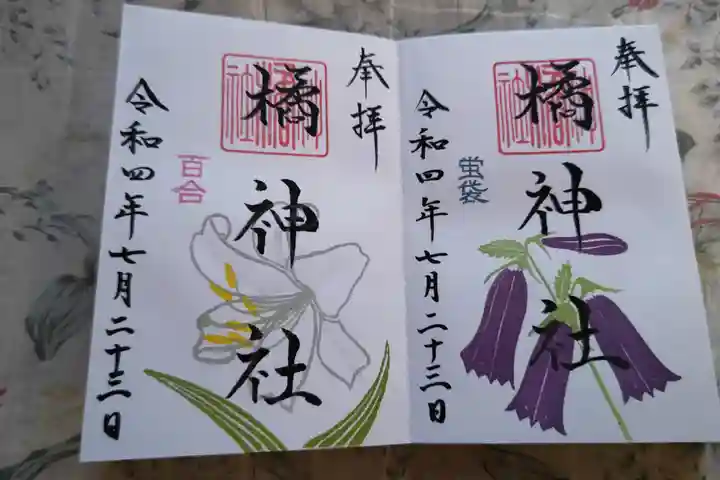 奉拝
橘神社
百合
令和四年七月二十三日
奉拝
橘神社
蛍袋
令和四年七月二十三日